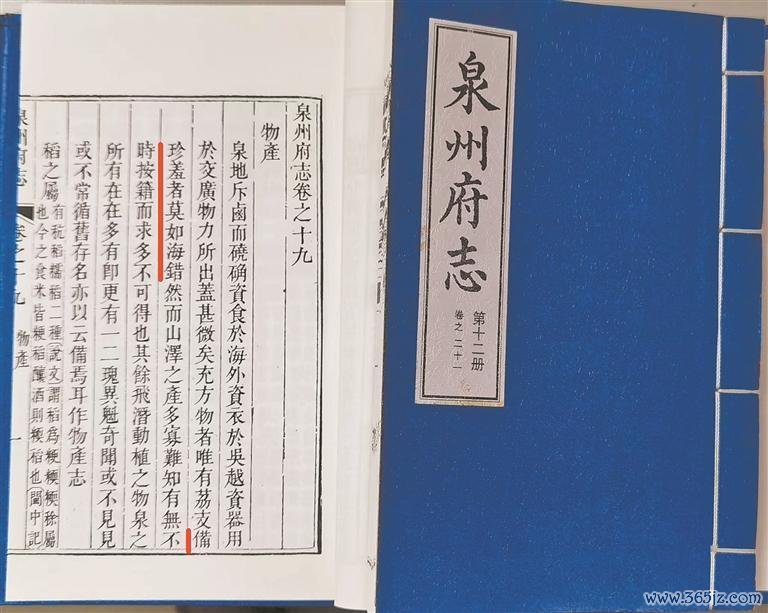 泉州府志卷之十九
物產
泉地斥鹵而磽确資食於海外資衣於吳越資器用
於交廣物力所出蓋甚微矣充方物者唯有荔支備
珍羞者莫如海錯然而山澤之產多寡難知有無不
時按籍而求多不可得也其餘飛潛動植之物泉之
所有在在多有卽更有一二瑰異魁奇聞或不見見
或不常循舊存名亦以云備焉耳作物產志
稻之屬
有秔稻糯稻二種說文謂稻爲稉稉稌屬
也今之食米皆稉稻釀酒則稉稻也閩中記
泉州府志 卷之十九 物產 一
泉州府志
第十二册
卷之二十一
www.365jz.com